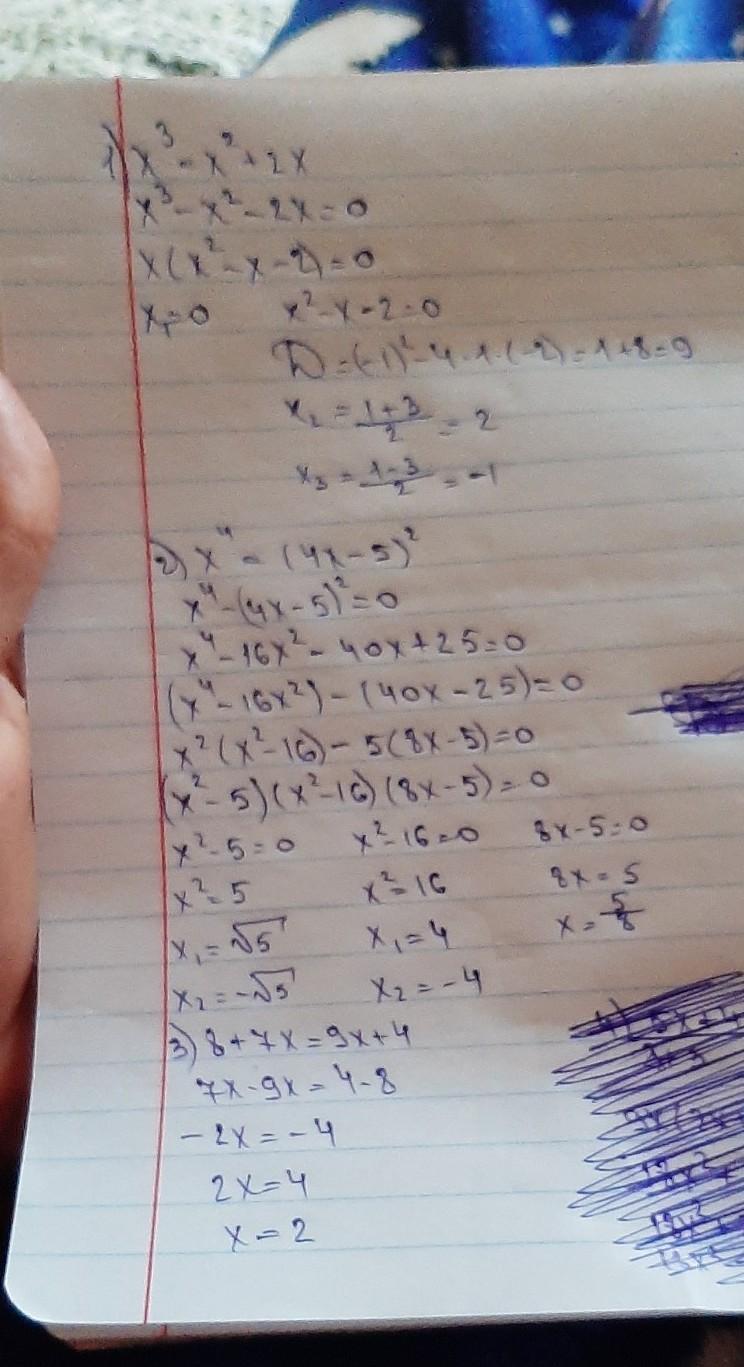 1) x³ = x² + 2x
x³ - x² - 2x = 0
x(x² - x - 2) = 0
x₁ = 0 x² - x - 2 = 0
D = (-1)² - 4 · 1 · (-2) = 1 + 8 = 9
x₂ = (1+3)/2 = 2
x₃ = (1-3)/2 = -1
2) x⁴ = (4x - 5)²
x⁴ - (4x - 5)² = 0
x⁴ - 16x² - 40x + 25 = 0
(x⁴ - 16x²) - (40x - 25) = 0
x²(x² - 16) - 5(8x - 5) = 0
(x² - 5)(x² - 16)(8x - 5) = 0
x² - 5 = 0 x² - 16 = 0 8x - 5 = 0
x² = 5 x² = 16 8x = 5
x₁ = √5 x₁ = 4 x = 5/8
x₂ = -√5 x₂ = -4
3) 8 + 7x = 9x + 4
7x - 9x = 4 - 8
-2x = -4
2x = 4
x = 2